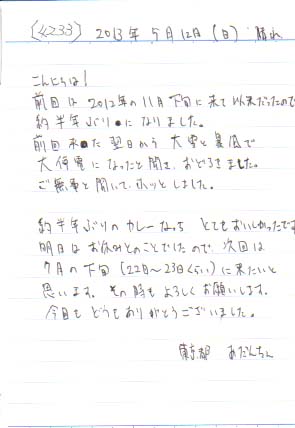 [4233] 2013年 5月12日(日) 晴れ
こんにちは!
前回は2012年の11月下旬に来て以来だったので
約半年ぶりになりました。
前回来た翌日から大雪と暴風で
大停電になったと聞き、おどろきました。
ご無事と聞いて、ホッとしました。
約半年ぶりのカレーなっち とてもおいしかったです
明日はお休みとのことでしたので、次回は
7月の下旬(22日〜23日くらい)に来たいと
思います。その時もよろしくお願いします。
今日もどうもありがとうございました。
東京都 あだんちん